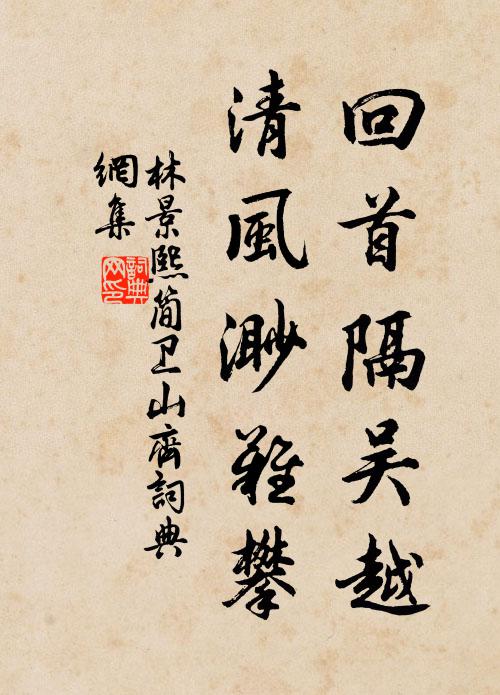 回首隔吴越
清風渺難攀
林景熙简卫山齊詞典
網集
詞典网印